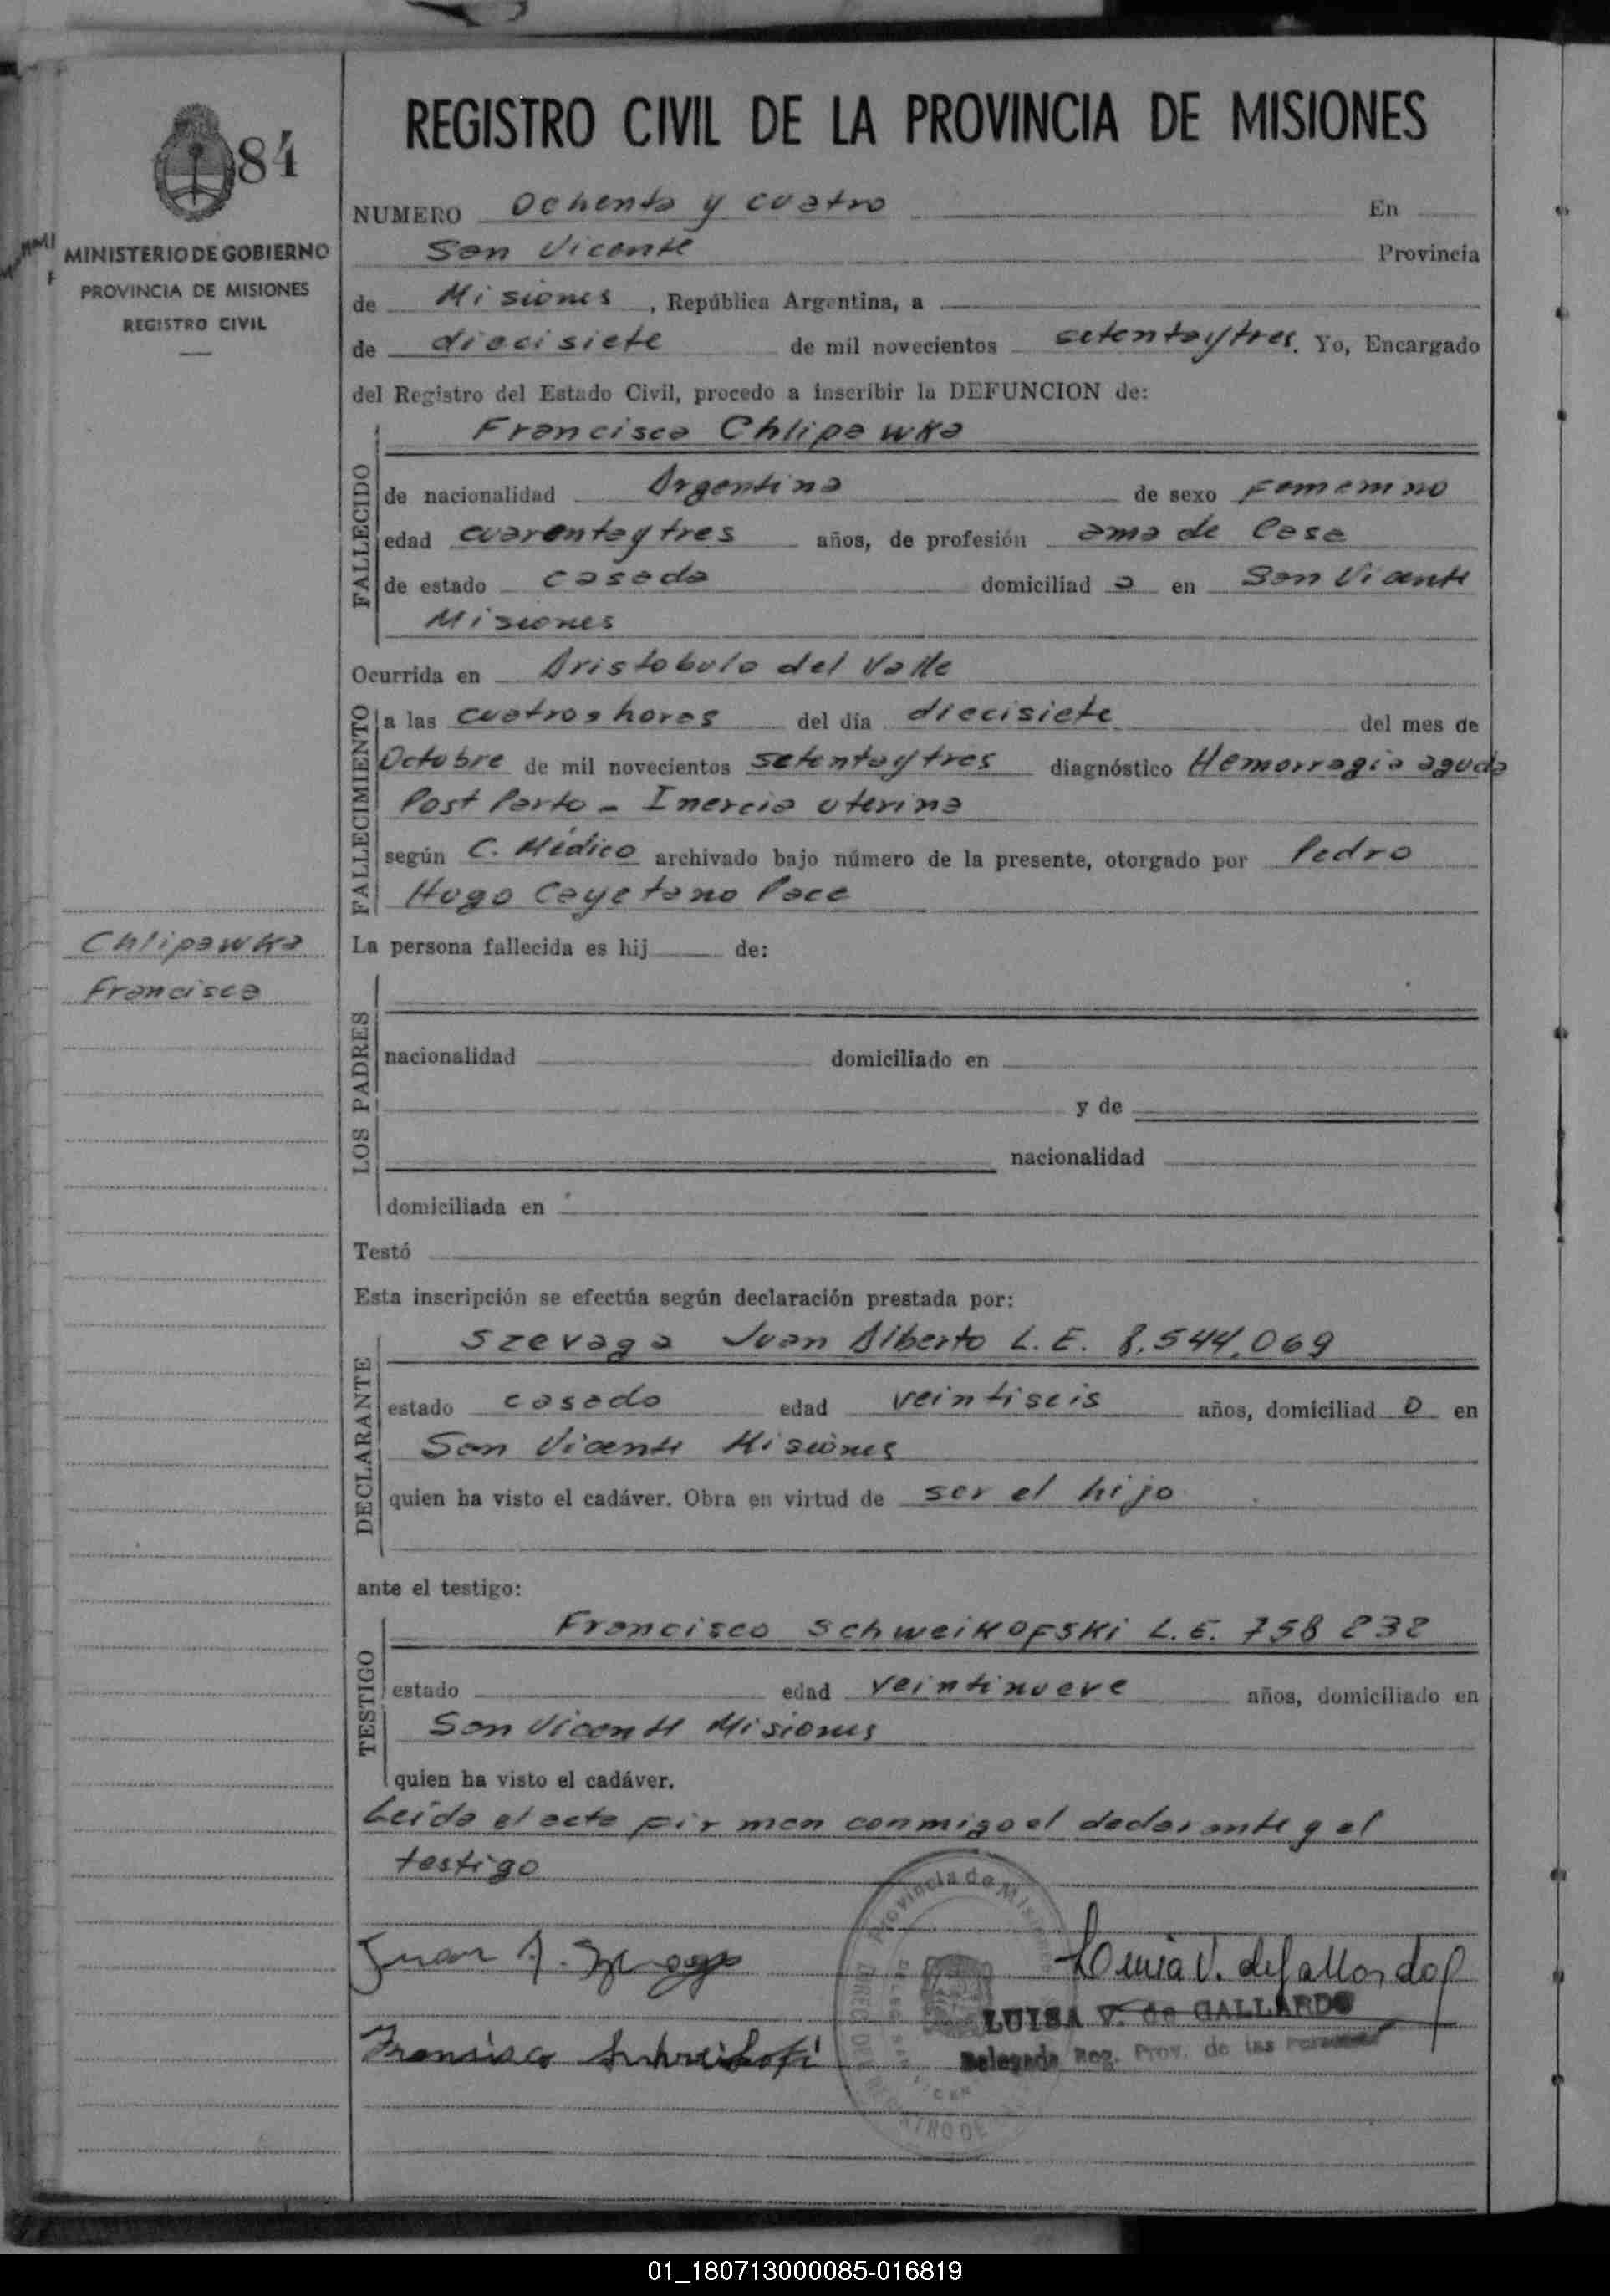 84
MINISTERIO DE GOBIERNO
PROVINCIA DE MISIONES
REGISTRO CIVIL
Chlipawka
Francisca
REGISTRO CIVIL DE LA PROVINCIA DE MISIONES
NUMERO Ochenta y cuatro En
San Vicente Provincia
de Misiones, República Argentina, a
de diecisiete de mil novecientos setentaytres. Yo, Encargado
del Registro del Estado Civil, procedo a inscribir la DEFUNCION de:
Francisca Chlipawka
FALLECIDO
de nacionalidad Argentina de sexo Femenino
edad cuarentaytres años, de profesión ama de Casa
de estado casada domiciliad a en San Vicente
Misiones
Ocurrida en Aristobulo del Valle
FALLECIMIENTO
a las cuatro horas del día diecisiete del mes de
Octubre de mil novecientos setentaytres diagnóstico Hemorragia aguda
Post Parto - Inercia uterina
según C. Médico archivado bajo número de la presente, otorgado por Pedro
Hugo Cayetano Pace
La persona fallecida es hij de:
LOS PADRES
nacionalidad domiciliado en
y de
nacionalidad
domiciliada en
Testó
Esta inscripción se efectúa según declaración prestada por:
DECLARANTE
Szevaga Juan Alberto L. E. 8.544.069
estado casado edad veintiseis años, domiciliad o en
San Vicente Misiones
quien ha visto el cadáver. Obra en virtud de ser el hijo
ante el testigo:
TESTIGO
Francisco Schweikofski L. E. 758 232
estado edad veintinueve años, domiciliado en
San Vicente Misiones
quien ha visto el cadáver.
Leída el acta firman conmigo el declarante y el
testigo
Provincia de Misiones
Juan A.
LUISA V. de GALLARDO
Delegada Reg. Prov. de las Personas
Francisco
01_180713000085-016819